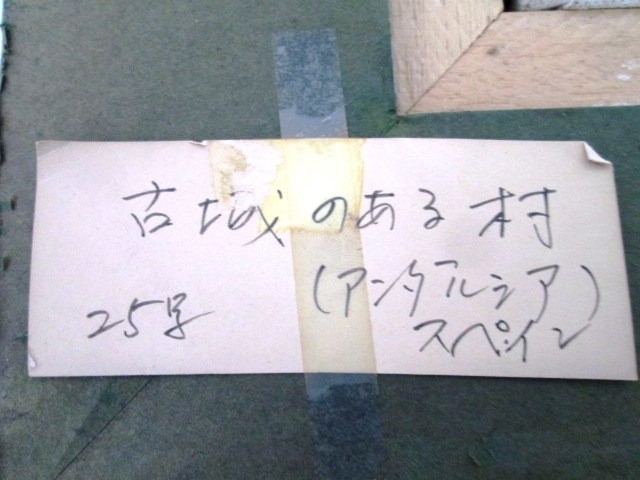 古城のある村
(アンダルシア)
25号
スペイン